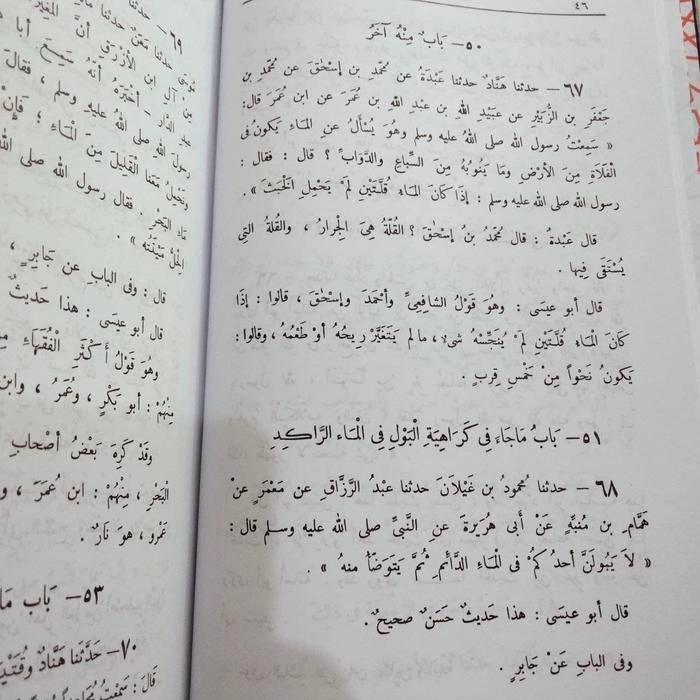 ٤٦
٥٠- بَابٌ مِنْهُ آخَرُ
٦٧- حدثنا هَنَّادٌ حدثنا عَبْدَةُ عن مُحَمَّدِ بن إسْحٰقَ عن مُحَمَّدِ بن
جَعْفَرِ بن الزُّبَيْرِ عن عُبَيْدِ اللهِ بن عَبْدِ اللهِ بن عُمَرَ عن ابن عُمَرَ قال:
« سَمِعْتُ رسول الله صلى الله عليه وسلم وهُوَ يُسْأَلُ عن المَاءِ يَكُونُ فى
الْفَلاَةِ مِنَ الأَرْضِ وَمَا يَنُوبُهُ مِنَ السِّبَاعِ والدَّوَابِّ ؟ قال : فقال :
رسول الله صلى الله عليه وسلم : إذَا كَانَ المَاءُ قُلَّتَيْنِ لَمْ يَحْمِلِ الْخَبَثَ » .
قال عَبْدَةُ : قال مُحَمَّدُ بنُ إسْحٰقَ ؟ القُلَّةُ هِىَ الْجِرَارُ ، والقُلَّةُ التِى
يُسْتَقَى فِيهَا .
قال أبو عيسَى : وهُوَ قَوْلُ الشافِعِىِّ وأحْمَدَ وإسْحٰقَ ، قالوا : إذَا
كَانَ المَاءُ قُلَّتَيْنِ لَمْ يُنَجِّسْهُ شىءٌ ، مالم يَتَغَيَّرْ رِيحُهُ أوْ طَعْمُهُ ، وقالوا :
يَكُونُ نَحْواً مِنْ خَمْسِ قِرَبٍ .
٥١- بَابُ مَاجَاءَ فى كَرَاهِيَةِ الْبَوْلِ فِى المَاءِ الرَّاكِدِ
٦٨- حدثنا مُحْمُودُ بن غَيْلاَنَ حدثنا عَبْدُ الرَّزَّاقِ عن مَعْمَرٍ عَنْ
هَمَّامِ بن مُنَبِّهٍ عَنْ أبى هُرَيْرَةَ عن النَّبىِّ صلى الله عليه وسلم قال :
« لاَ يَبُولَنَّ أحدُكُمْ فى المَاءِ الدَّائِمِ ثُمَّ يَتَوَضَّأُ منهُ » .
قال أبو عيسَى : هذا حَديثٌ حَسَنٌ صحيحٌ .
وفى الباب عَنْ جَابِرٍ .
٦٩- حدثنا
مِنْ آلِ ابن الأزْرَقِ أنَّ المُغِيرَ
عبد الدَّار - أخْبَرَهُ أنَّهُ سَمِعَ أبا
رسولَ الله صلى اللهُ عليهِ وسلم ، فقال
وَنَحْمِلُ مَعَنَا القَلِيلَ مِنَ المَاءِ ، فَإنْ
مَاءِ البَحْرِ . فقال رسول الله صلى الله
الحِلُّ مَيْتَتُهُ » .
قال : وفى الباب عن جَابِرٍ ،
قال أبو عيسَى : هذا حَديثٌ
وهُوَ قَوْلُ أكْثَرِ الْفُقَهَاءِ
مِنْهُمْ : أبو بَكْرٍ ، وعُمَرُ ، وابن
وقَدْ كَرِهَ بَعْضُ أصْحَابِ
الْبَحْرِ ، مِنْهُمْ : ابن عُمَرَ ،
عَمْرٍو ، هوَ نَارٌ .
٥٣- بَابُ
٧٠- حَدَّثَنَا هَنَّادٌ وقُتَيْ
قَالَ : سَمِعْتُ